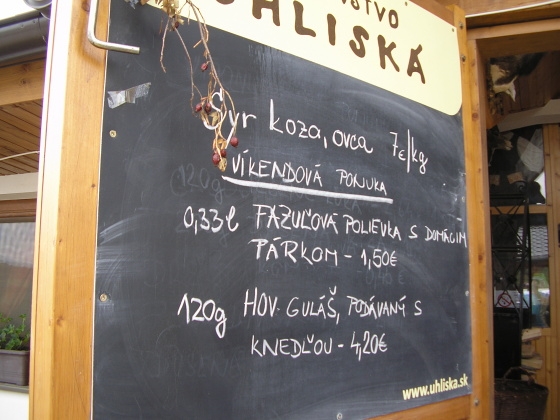 UHLISKÁ
Syr koza, ovca 7€/kg
VÍKENDOVÁ PONUKA
0,33l FAZUĽOVÁ POLIEVKA S DOMÁCIM
PÁRKOM - 1,50€
120g HOV. GULÁŠ, PODÁVANÝ S
KNEDĽOU - 4,20€
www.uhliska.sk